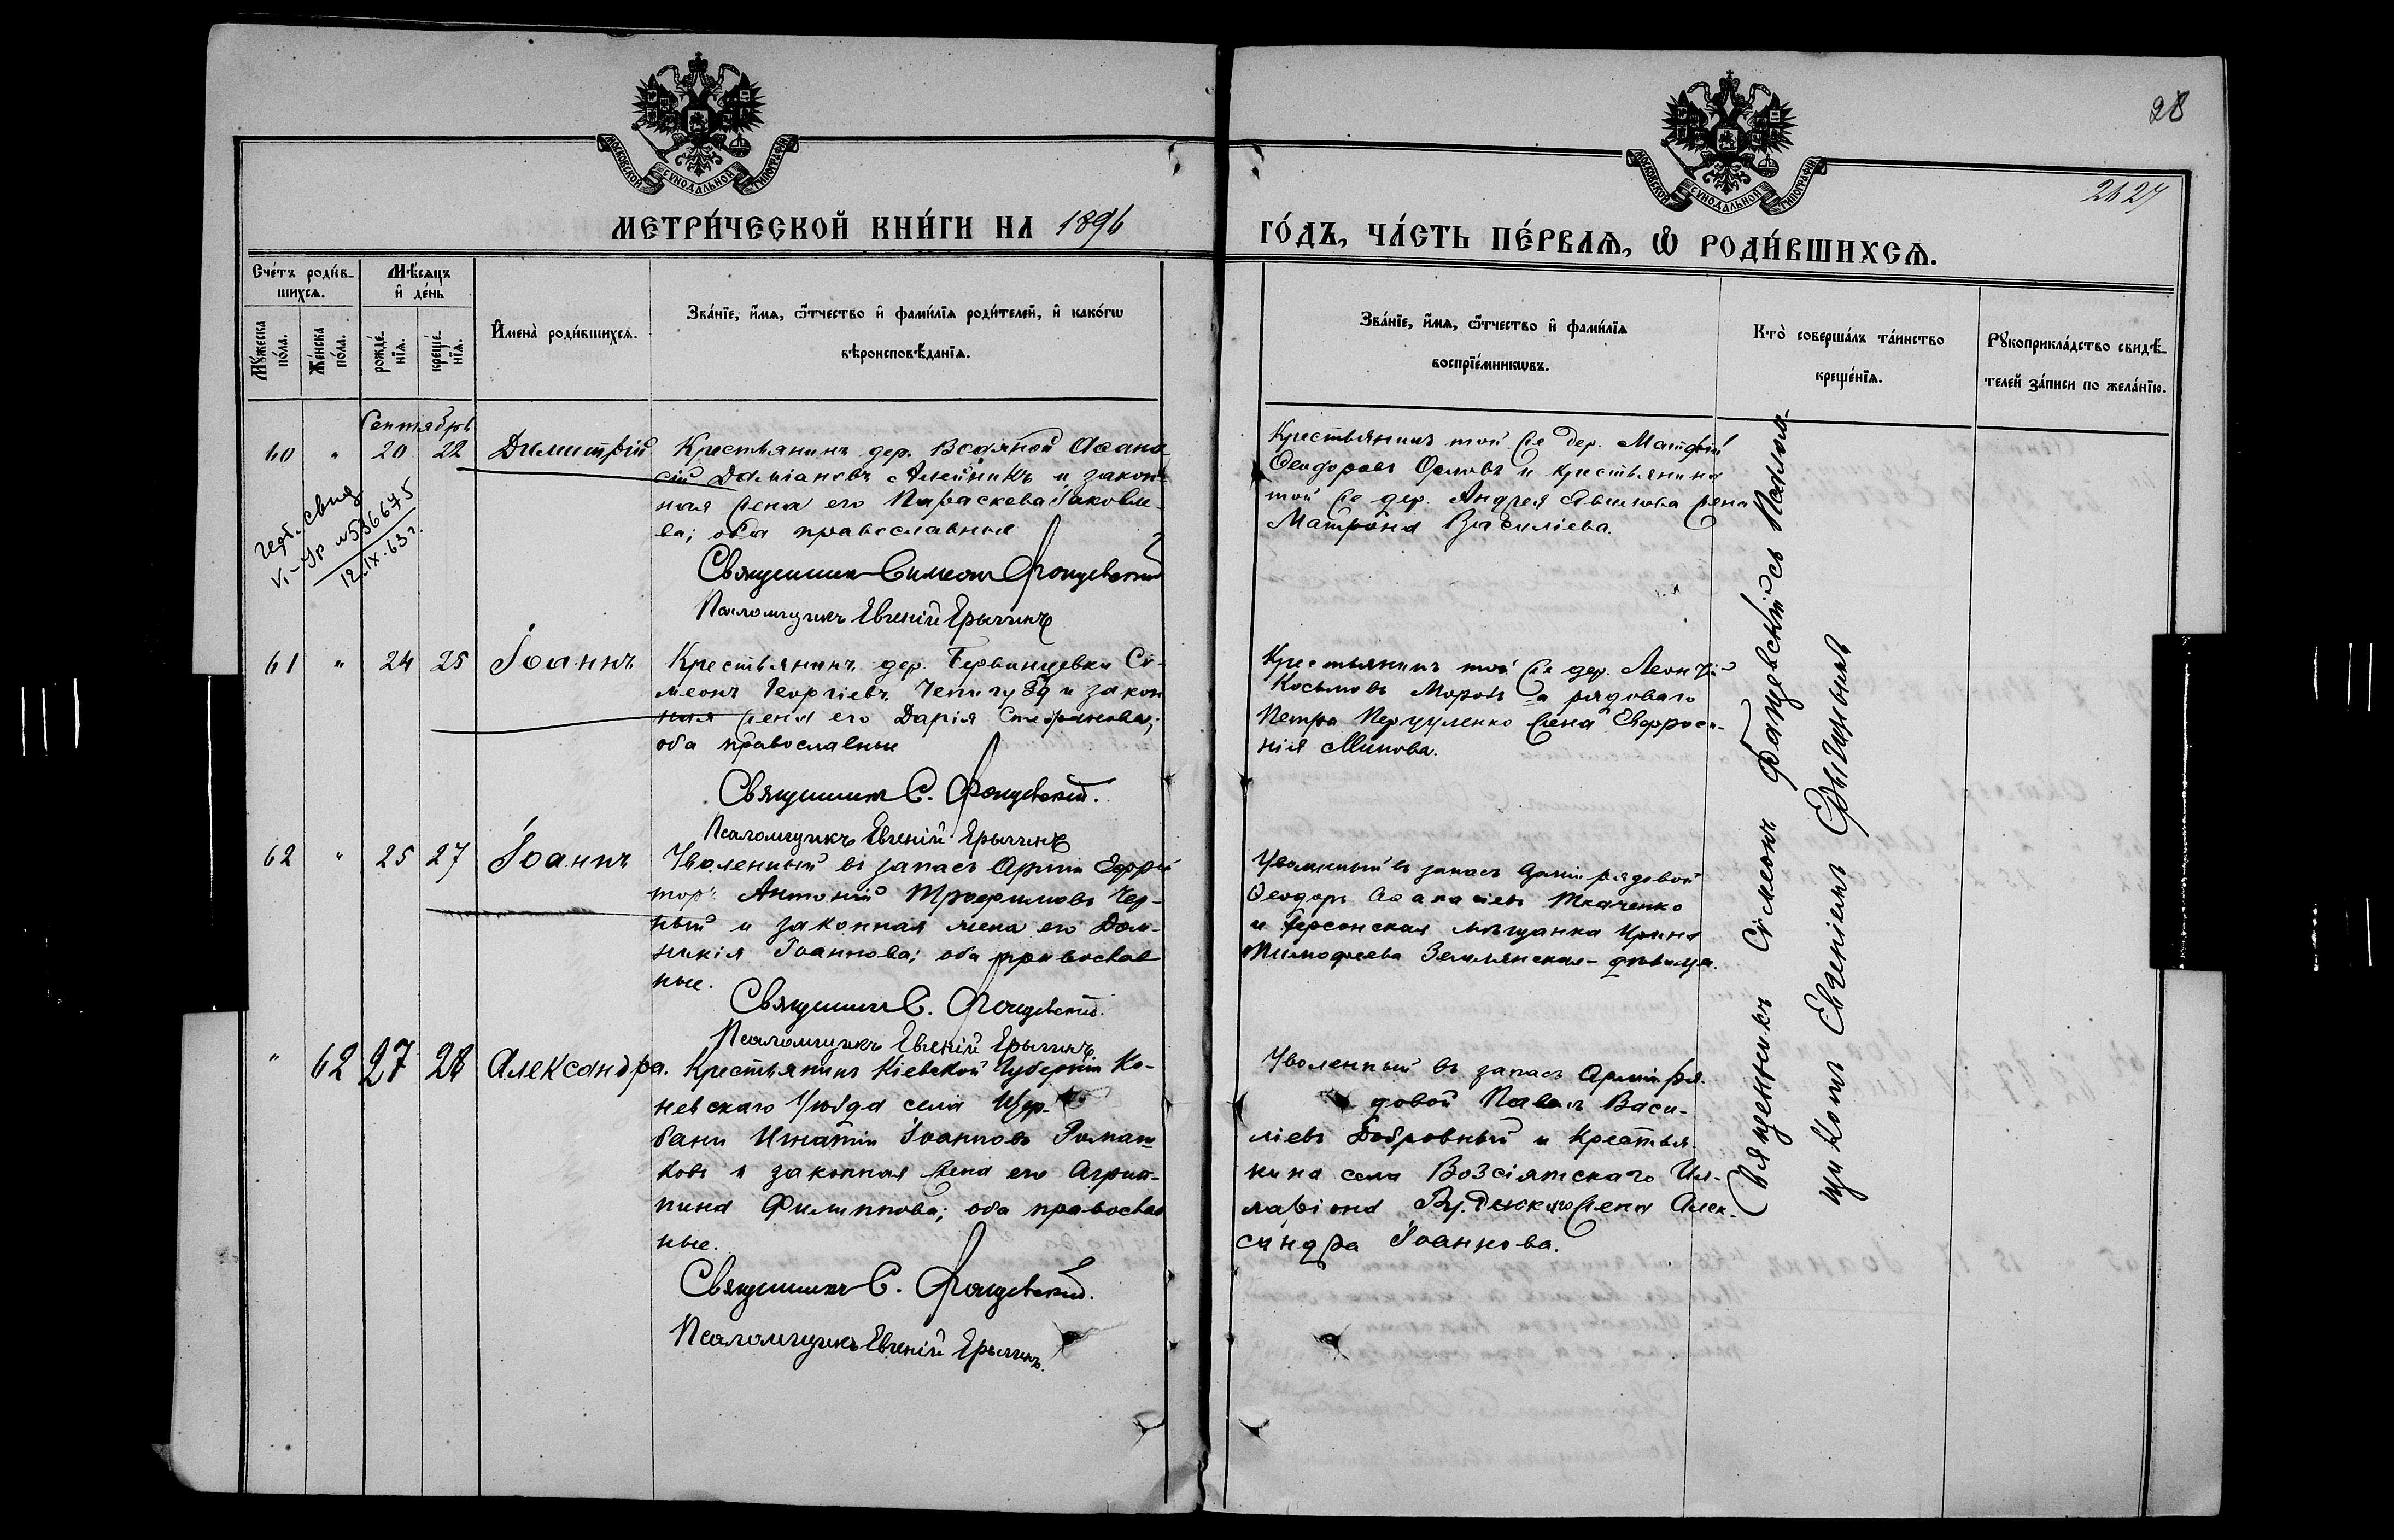 28
2627
МОСКОВСКОЙ СѴНОДАЛЬНОЙ ТИПОГРАФІИ
МОСКОВСКОЙ СѴНОДАЛЬНОЙ ТИПОГРАФІИ
МЕТРИ́ЧЕСКОЙ КНИ́ГИ НА 1896 ГО́ДЪ, ЧА́СТЬ ПЕ́РВАѦ, Ѡ РОДИ́ВШИХСѦ.
Сче́тъ роди́в-
шихсѧ.
Мѣ́сѧцъ
и҆ де́нь
Мꙋ́жеска
по́ла.
Же́нска
по́ла.
рожде́-
нїѧ.
креще́-
нїѧ.
И҆мена̀ роди́вшихсѧ.
Зва́нїе, и҆́мѧ, ѻ҆́тчество и҆ фами́лїѧ роди́телей, и҆ како́гѡ
вѣроисповѣ́данїѧ.
Зва́нїе, и҆́мѧ, ѻ҆́тчество и҆ фами́лїѧ
воспрїе́мникѡвъ.
Кто̀ соверша́лъ та́инство
креще́нїѧ.
Рꙋкоприкла́дство свидѣ́-
телей за́писи по жела́нїю.
Сентябрь
60 " 20 22 Димитрій
Крестьянинъ дер. Водяной Аѳана-
сій Даміановъ Алейникъ и закон-
ная жена его Параскева Іаковле-
ва; оба православные
Священникъ Симеонъ Фонцевскій
Псаломщикъ Евгеній Ерыгинъ
Крестьянинъ той же дер. Матѳей
Ѳеодоровъ Орловъ и крестьянина
той же дер. Андрея жена
Матрона Васильева.
герб. свид
V-ЯР №536675
12.IX.63 г.
61 " 24 25 Іоаннъ
Крестьянинъ дер. Си-
меонъ Георгіевъ и закон
ная жена его Дарія Стефанова;
оба православные
Священникъ С. Фонцевскій.
Псаломщикъ Евгеній Ерыгинъ
Крестьянинъ той же дер. Леонтій
Косьмовъ Морозъ и рядоваго
Петра жена Евфроси-
нія
62 " 25 27 Іоаннъ
Уволенный въ запасъ Арміи Ефрей
торъ Антоній Трофимовъ Чер-
ный и законная жена его Дом-
никія Іоаннова; оба православ
ные.
Священникъ С. Фонцевскій.
Псаломщикъ Евгеній Ерыгинъ
Уволенный въ запасъ Арміи рядовой
Ѳеодоръ Аѳанасіевъ Ткаченко
и Херсонская мѣщанка Ирина
Тимофеева Землянская - дѣвица.
" 62 27 28 Александра.
Крестьянинъ Кіевской Губерніи Ка-
невскаго Уѣзда села
Игнатій Іоанновъ Роман-
ковъ и законная жена его Агрип-
пина Филиппова; оба православ
ные.
Священникъ С. Фонцевскій.
Псаломщикъ Евгеній Ерыгинъ.
Уволенный въ запасъ Арміи ря-
довой Павелъ Васи-
ліевъ Бобровный и крестья-
нина села Возсіятскаго Ил-
ларіона жена Алек-
сандра Іоаннова.
Священникъ Симеонъ Фонцевскій съ Псалом-
щикомъ Евгеніемъ Ерыгинымъ